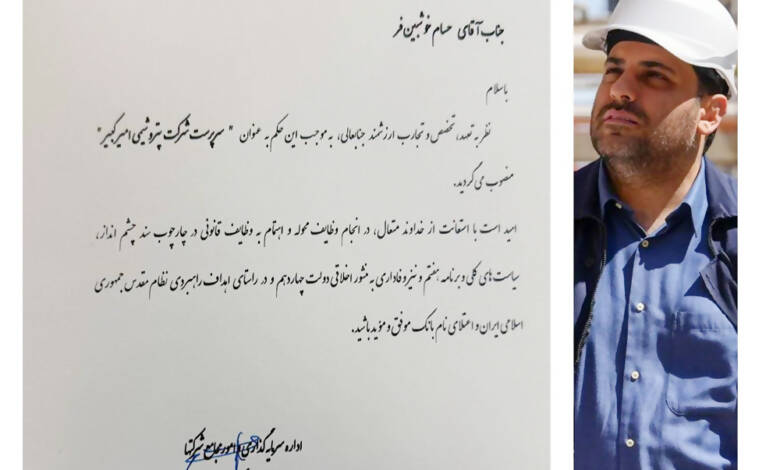 جناب آقای حسام خوشبین فر
باسلام
نظر به تعهد، تخصص و تجارب ارزشمند جنابعالی، به موجب این حکم به عنوان " سرپرست شرکت پتروشیمی امیرکبیر"
منصوب می گردید.
امید است با استعانت از خداوند متعال، در انجام وظایف محوله و اهتمام به وظایف قانونی در چارچوب سند چشم انداز،
سیاست های کلی و برنامه هفتم و نیز وفاداری به منشور اخلاقی دولت چهاردهم و در راستای اهداف راهبردی نظام مقدس جمهوری
اسلامی ایران و اعتلای نام بانک موفق و مؤید باشید.
اداره سرمایه گذاری و امور مجامع شرکتها